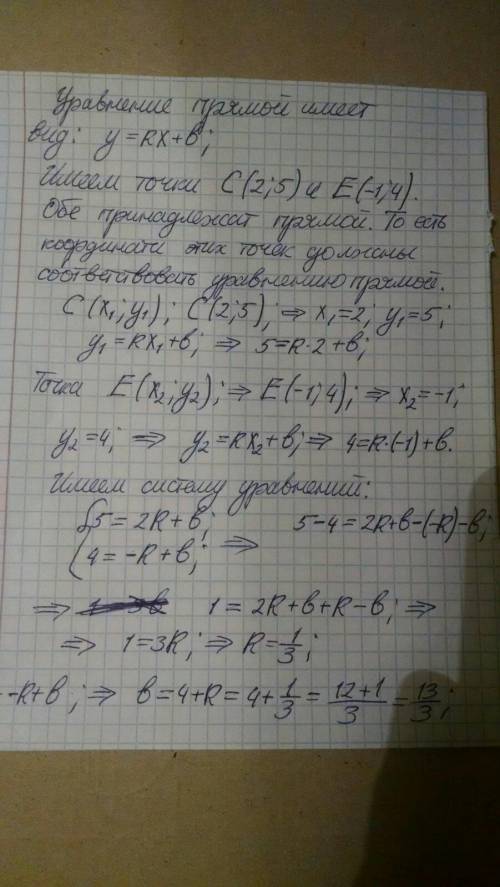 Уравнение прямой имеет
вид: y = Rx + в;
Имеем точки C(2; 5) и E(-1; 4).
Обе принадлежат прямой. То есть
координаты этих точек должны
соответствовать уравнению прямой.
C(x₁; y₁); C(2; 5); ⇒ x₁=2, y₁=5;
y₁ = Rx₁ + в; ⇒ 5 = R·2 + в;
Точка E(x₂; y₂); ⇒ E(-1; 4); ⇒ x₂ = -1;
y₂ = 4; ⇒ y₂ = Rx₂ + в; ⇒ 4 = R·(-1) + в.
Имеем систему уравнений:
{5 = 2R + в; 5-4 = 2R+в-(-R)-в;
4 = -R + в; ⇒
⇒ 1 = 2R + в + R - в; ⇒
⇒ 1 = 3R; ⇒ R = 1/3;
-R+в; ⇒ в = 4+R = 4+1/3 = (12+1)/3 = 13/3;